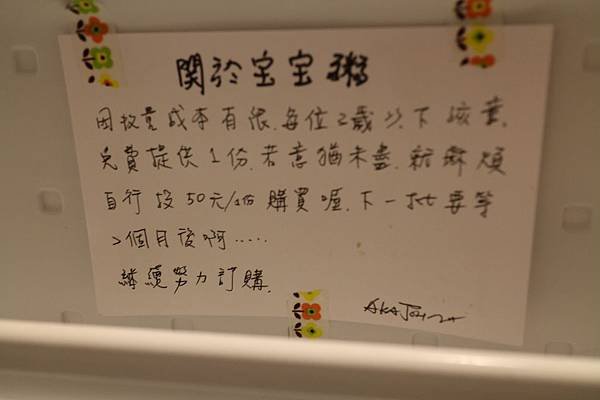 關於宝宝粥
因成本有限.每位2歲以下孩童.
免費提供1份.若意猶未盡.就麻煩
自行投50元/1份購買喔.下一批要等
2個月後啊.....
繼續努力訂購.
AKA